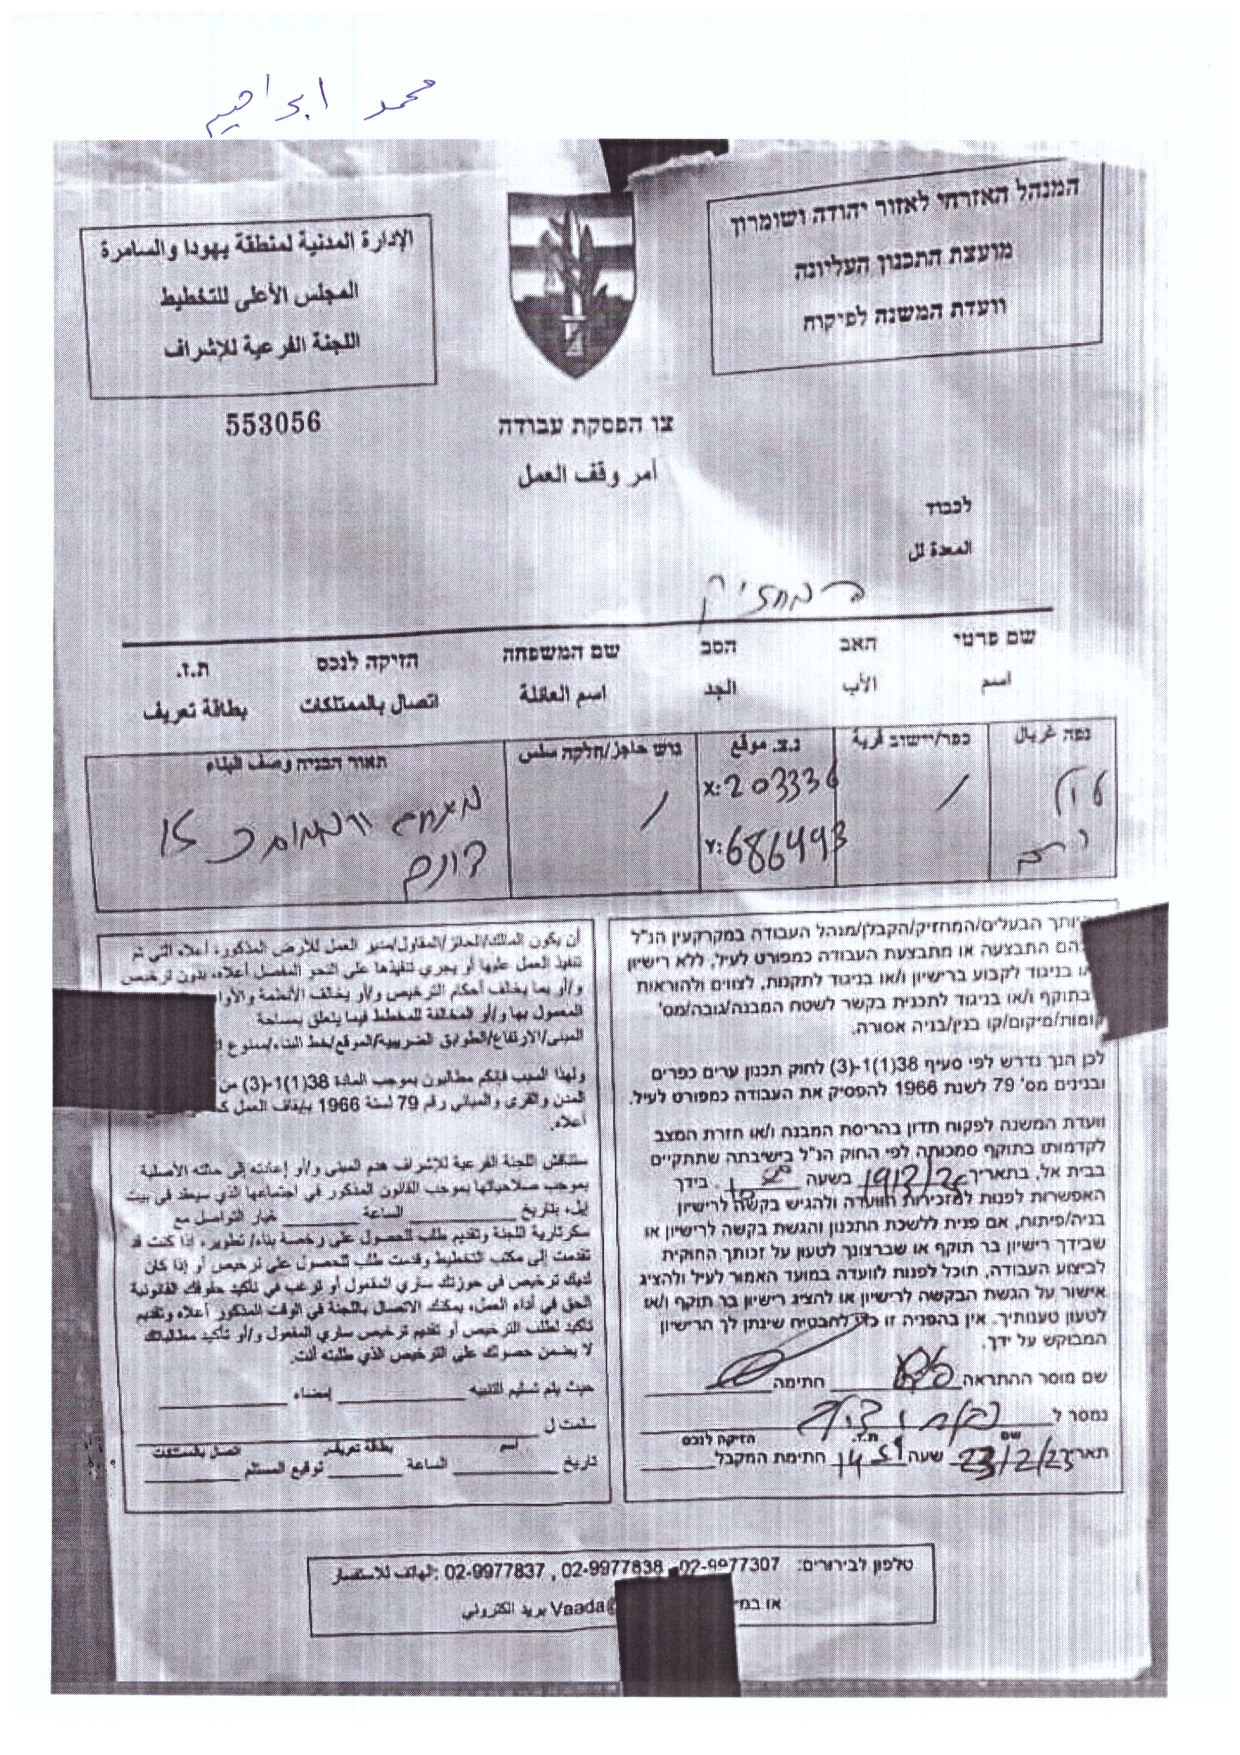 محمد ابراهيم
המנהל האזרחי לאזור יהודה ושומרון
מועצת התכנון העליונה
וועדת המשנה לפיקוח
الإدارة المدنية لمنطقة يهودا والسامرة
المجلس الأعلى للتخطيط
اللجنة الفرعية للإشراف
553056
צו הפסקת עבודה
أمر وقف العمل
לכבוד
المعدة لل
המחזיק
שם פרטי האב הסב שם המשפחה הזיקה לנכס ת.ז.
اسم الأب الجد اسم العائلة اتصال بالممتلكات بطاقة تعريف
נפה غربال כפר/יישוב قرية נ.צ. מוקע גוש חاجز/חלקה سلس תאור הבניה وصف البناء
טול / X: 203336 /
כרם Y: 686493
15
דונם
הבעלים/המחזיק/הקבלן/מנהל העבודה במקרקעין הנ"ל
בהם התבצעה או מתבצעת העבודה כמפורט לעיל, ללא רישיון
או בניגוד לקבוע ברישיון ו/או בניגוד לתקנות, לצווים ולהוראות
בתוקף ו/או בניגוד לתכנית בקשר לשטח המבנה/גובה/מס'
קומות/מיקום/קו בנין/בניה אסורה.
לכן הנך נדרש לפי סעיף 38(1)1-(3) לחוק תכנון ערים כפרים
ובנינים מס' 79 לשנת 1966 להפסיק את העבודה כמפורט לעיל.
וועדת המשנה לפקוח תדון בהריסת המבנה ו/או חזרת המצב
לקדמותו בתוקף סמכותה לפי החוק הנ"ל בישיבתה שתתקיים
בבית אל, בתאריך בשעה . בידך
האפשרות לפנות למזכירות הוועדה ולהגיש בקשה לרישיון
בניה/פיתוח, אם פנית ללשכת התכנון והגשת בקשה לרישיון או
שבידך רישיון בר תוקף או שברצונך לטעון על זכותך החוקית
לביצוע העבודה, תוכל לפנות לוועדה במועד האמור לעיל ולהציג
אישור על הגשת הבקשה לרישיון או להציג רישיון בר תוקף ו/או
לטעון טענותיך. אין בהפניה זו כדי להבטיח שינתן לך הרישיון
המבוקש על ידך.
שם מוסר ההתראה חתימה
נמסר ל
שם ת.ז. הזיקה לנכס
תאריך 23/2/23 שעה 14 51 חתימת המקבל
أن يكون المالك/الحائز/المقاول/مدير العمل للأرض المذكور، أعلاه التي تم
تنفيذ العمل عليها أو يجري تنفيذها على النحو المفصل أعلاه، بدون ترخيص
و/أو بما يخالف أحكام الترخيص و/أو يخالف الأنظمة والأوا
المعمول بها و/أو المخالفة للمخطط فيما يتعلق بمساحة
المبنى/الارتفاع/الطوابق الضريبية/الموقع/خط البناء/ممنوع
ولهذا السبب فإنكم مطالبون بموجب المادة 38(1)1-(3) من
المدن والقرى والمباني رقم 79 لسنة 1966 بإيقاف العمل
أعلاه.
ستناقش اللجنة الفرعية للإشراف هدم المبنى و/أو إعادته إلى حالته الأصلية
بموجب صلاحياتها بموجب القانون المذكور في اجتماعها الذي سيعقد في بيت
إيل، بتاريخ الساعة خيار التواصل مع
سكرتارية اللجنة وتقديم طلب للحصول على رخصة بناء/ تطوير، إذا كنت قد
تقدمت إلى مكتب التخطيط وقدمت طلب للحصول على ترخيص أو إذا كان
لديك ترخيص في حوزتك ساري المفعول أو ترغب في تأكيد حقوقك القانونية
الحق في أداء العمل، يمكنك الاتصال باللجنة في الوقت المذكور أعلاه وتقديم
تأكيد لطلب الترخيص أو تقديم ترخيص ساري المفعول و/أو تأكيد مطالباتك
لا يضمن حصولك على الترخيص الذي طلبته أنت.
حيث يتم تسليم التنبيه إمضاء
سلمت ل
اسم بطاقة تعريف اتصال بالممتلكات
تاريخ الساعة توقيع المستلم
טלפון לבירורים: 02-9977307 , 02-9977838 , 02-9977837 :الهاتف للاستفسار
או במי Vaada@ بريد الكتروني